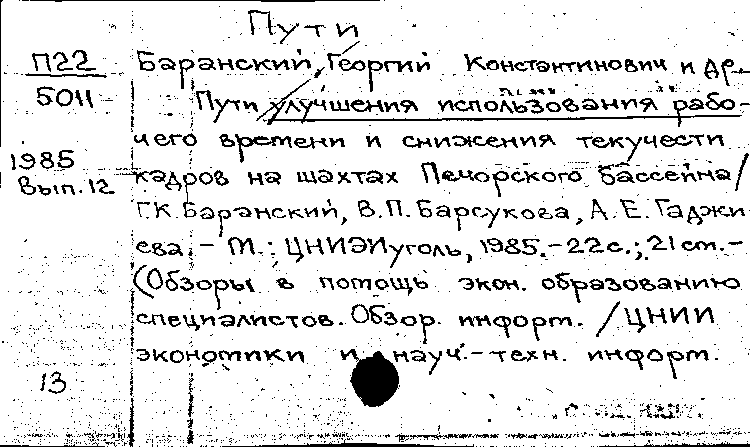 Пути
П22
5011
1985
Вып. 12
Баранский, Георгий Константинович и др.
Пути улучшения использования рабо-
чего времени и снижения текучести
кадров на шахтах Печорского бассейна /
Г.К. Баранский, В.П. Барсукова, А.Е. Гаджи
ева. - М.: ЦНИЭИуголь, 1985. - 22 с.; 21 cm. -
(Обзоры в помощь экон. образованию
специалистов. Обзор. информ. / ЦНИИ
экономики и науч.-техн. информ.
13